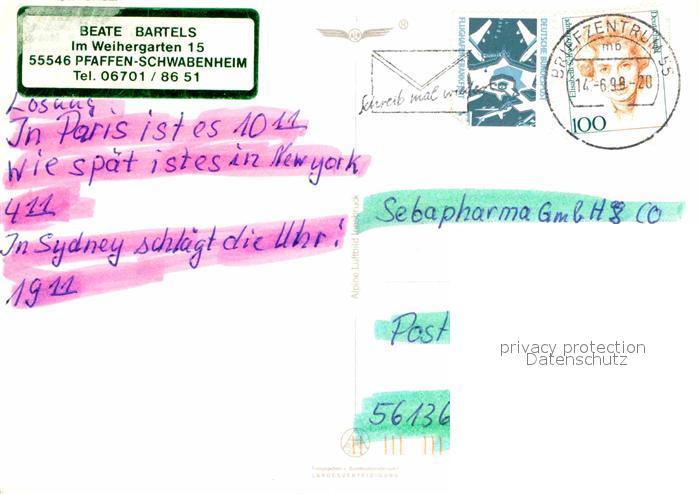 BEATE BARTELS
Im Weihergarten 15
55546 PFAFFEN-SCHWABENHEIM
Tel. 06701 / 86 51
Lösung
In Paris ist es 10 11
Wie spät ist es in New york
4 11
In Sydney schlägt die Uhr!
19 11
Schreib mal wieder
FLUGHAFEN FRANKFURT
DEUTSCHE BUNDESPOST
Deutschland
100
BRIEFZENTRUM 55
mb
14.-6.98-20
Alpine Luftbild Innsbruck
Sebapharma GmbH & CO
Post
56136
privacy protection
Datenschutz
LANDESVERTEIDIGUNG